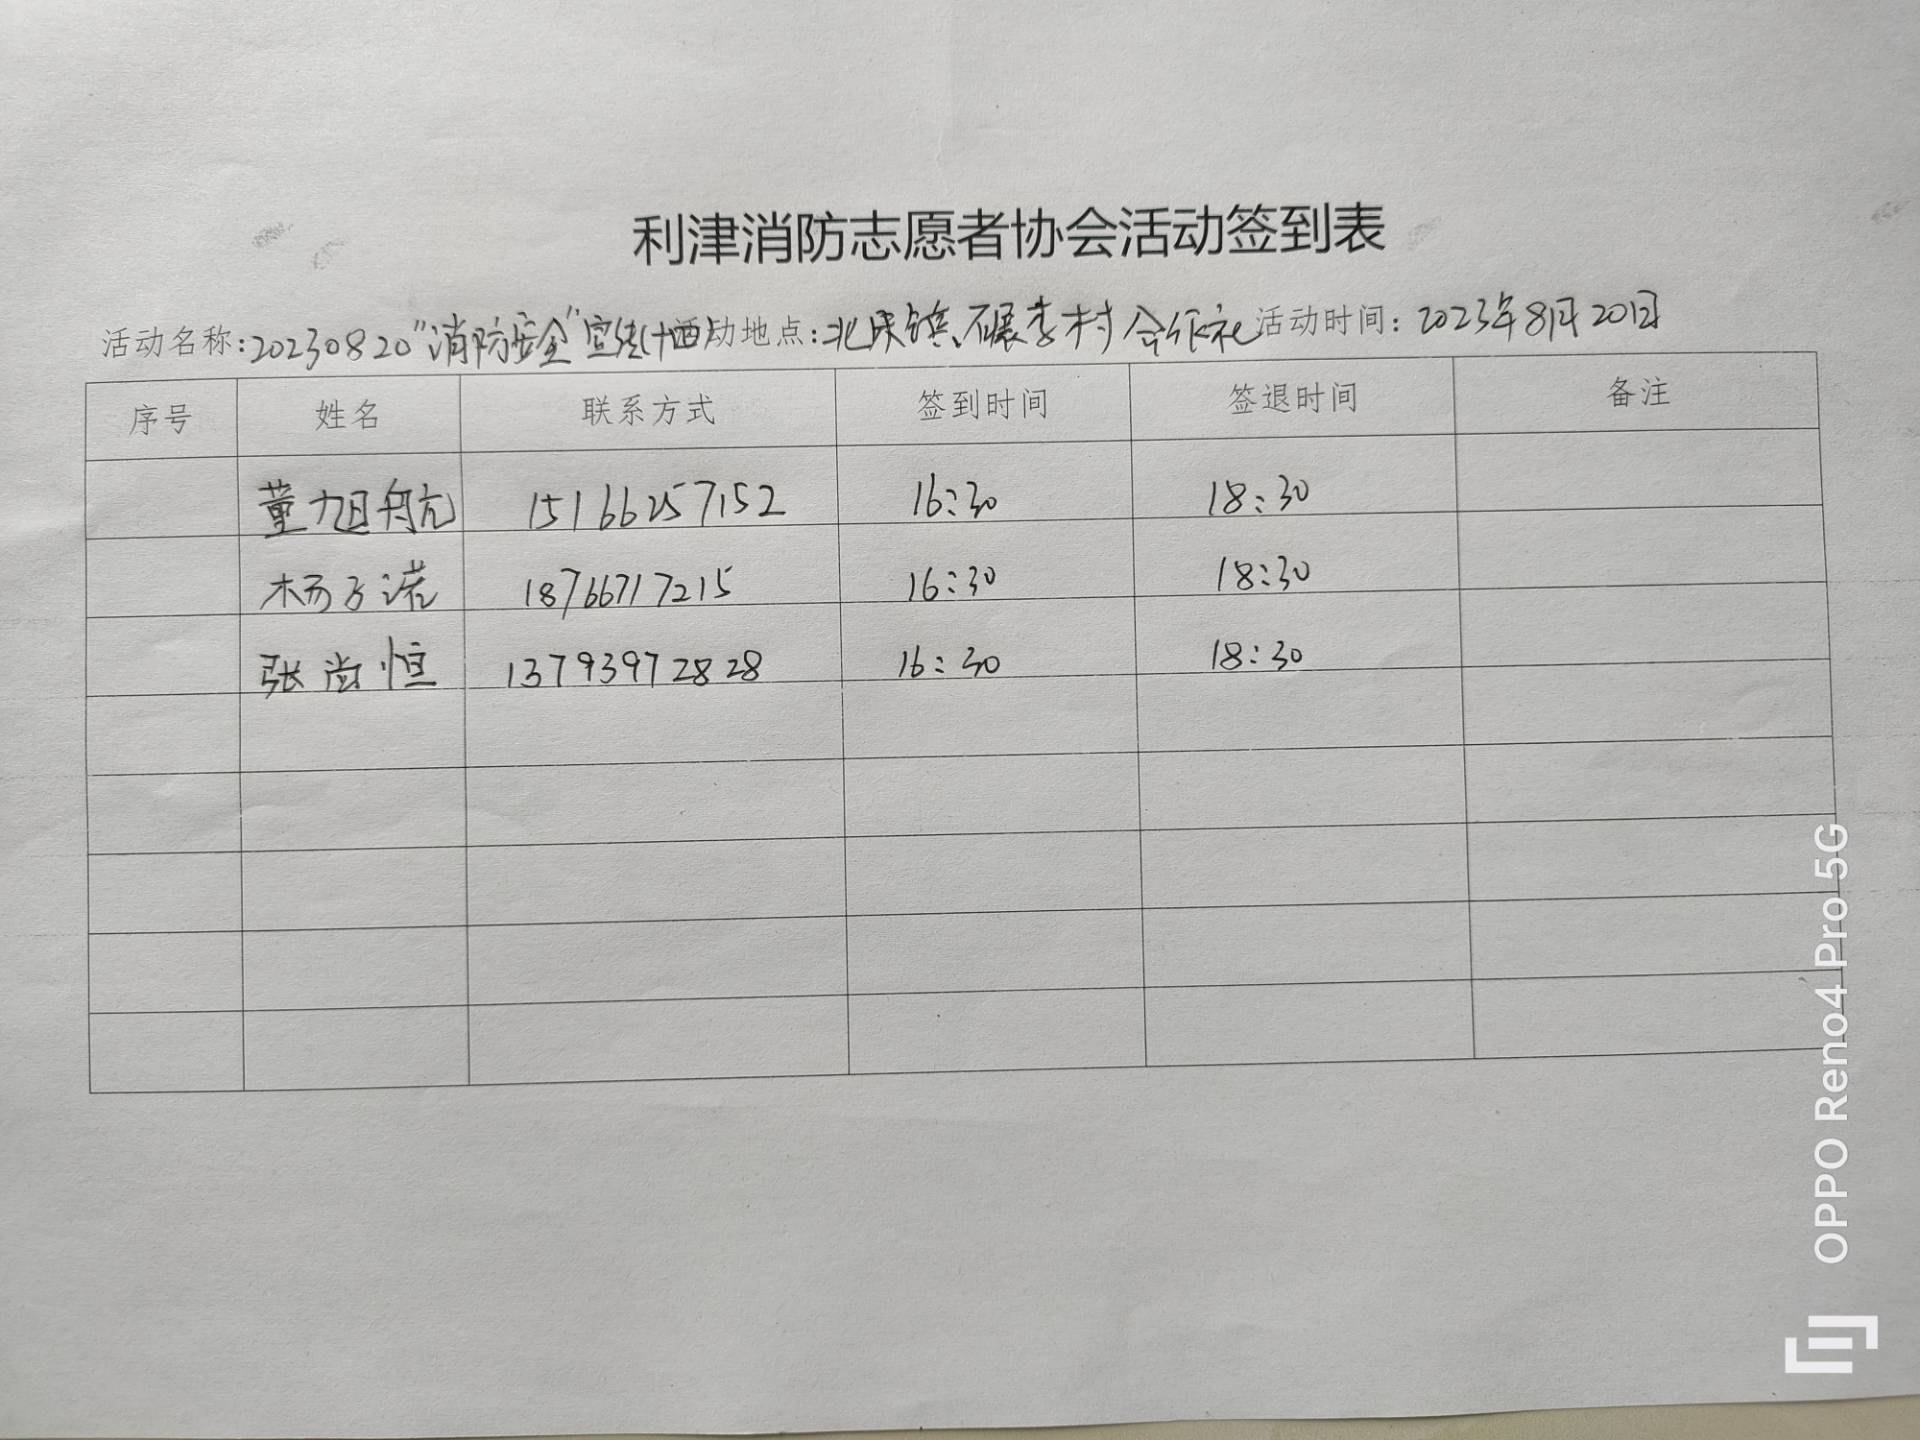 利津消防志愿者协会活动签到表
活动名称:20230820"消防安全"宣传 活动地点:北宋镇、碾李村合作社 活动时间:2023年8月20日
序号 姓名 联系方式 签到时间 签退时间 备注
董旭航 15166257152 16:30 18:30
杨子诺 18766717215 16:30 18:30
张尚恒 13793972828 16:30 18:30
OPPO Reno4 Pro 5G